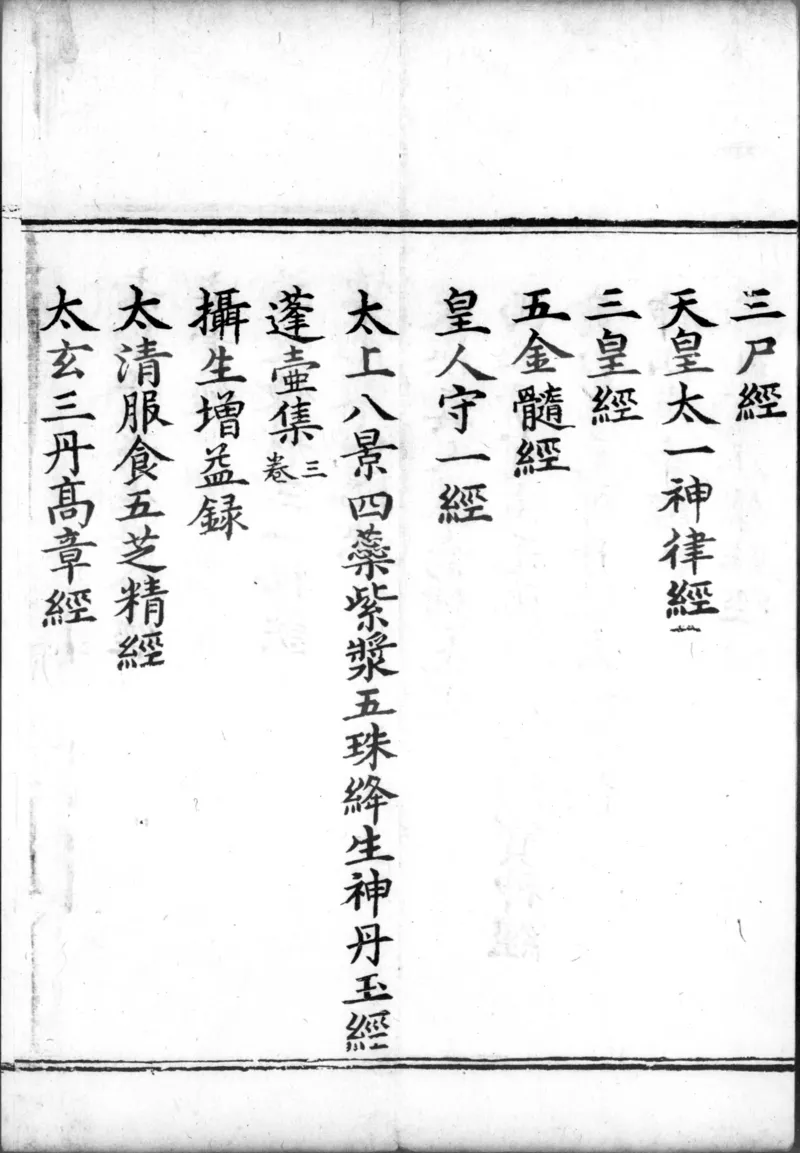 三尸經
天皇太一神律經
三皇經
五金髓經
皇人守一經
太上八景四蘂紫漿五珠絳生神丹玉經
蓬壺集三卷
攝生增益録
太清服食五芝精經
太玄三丹髙章經